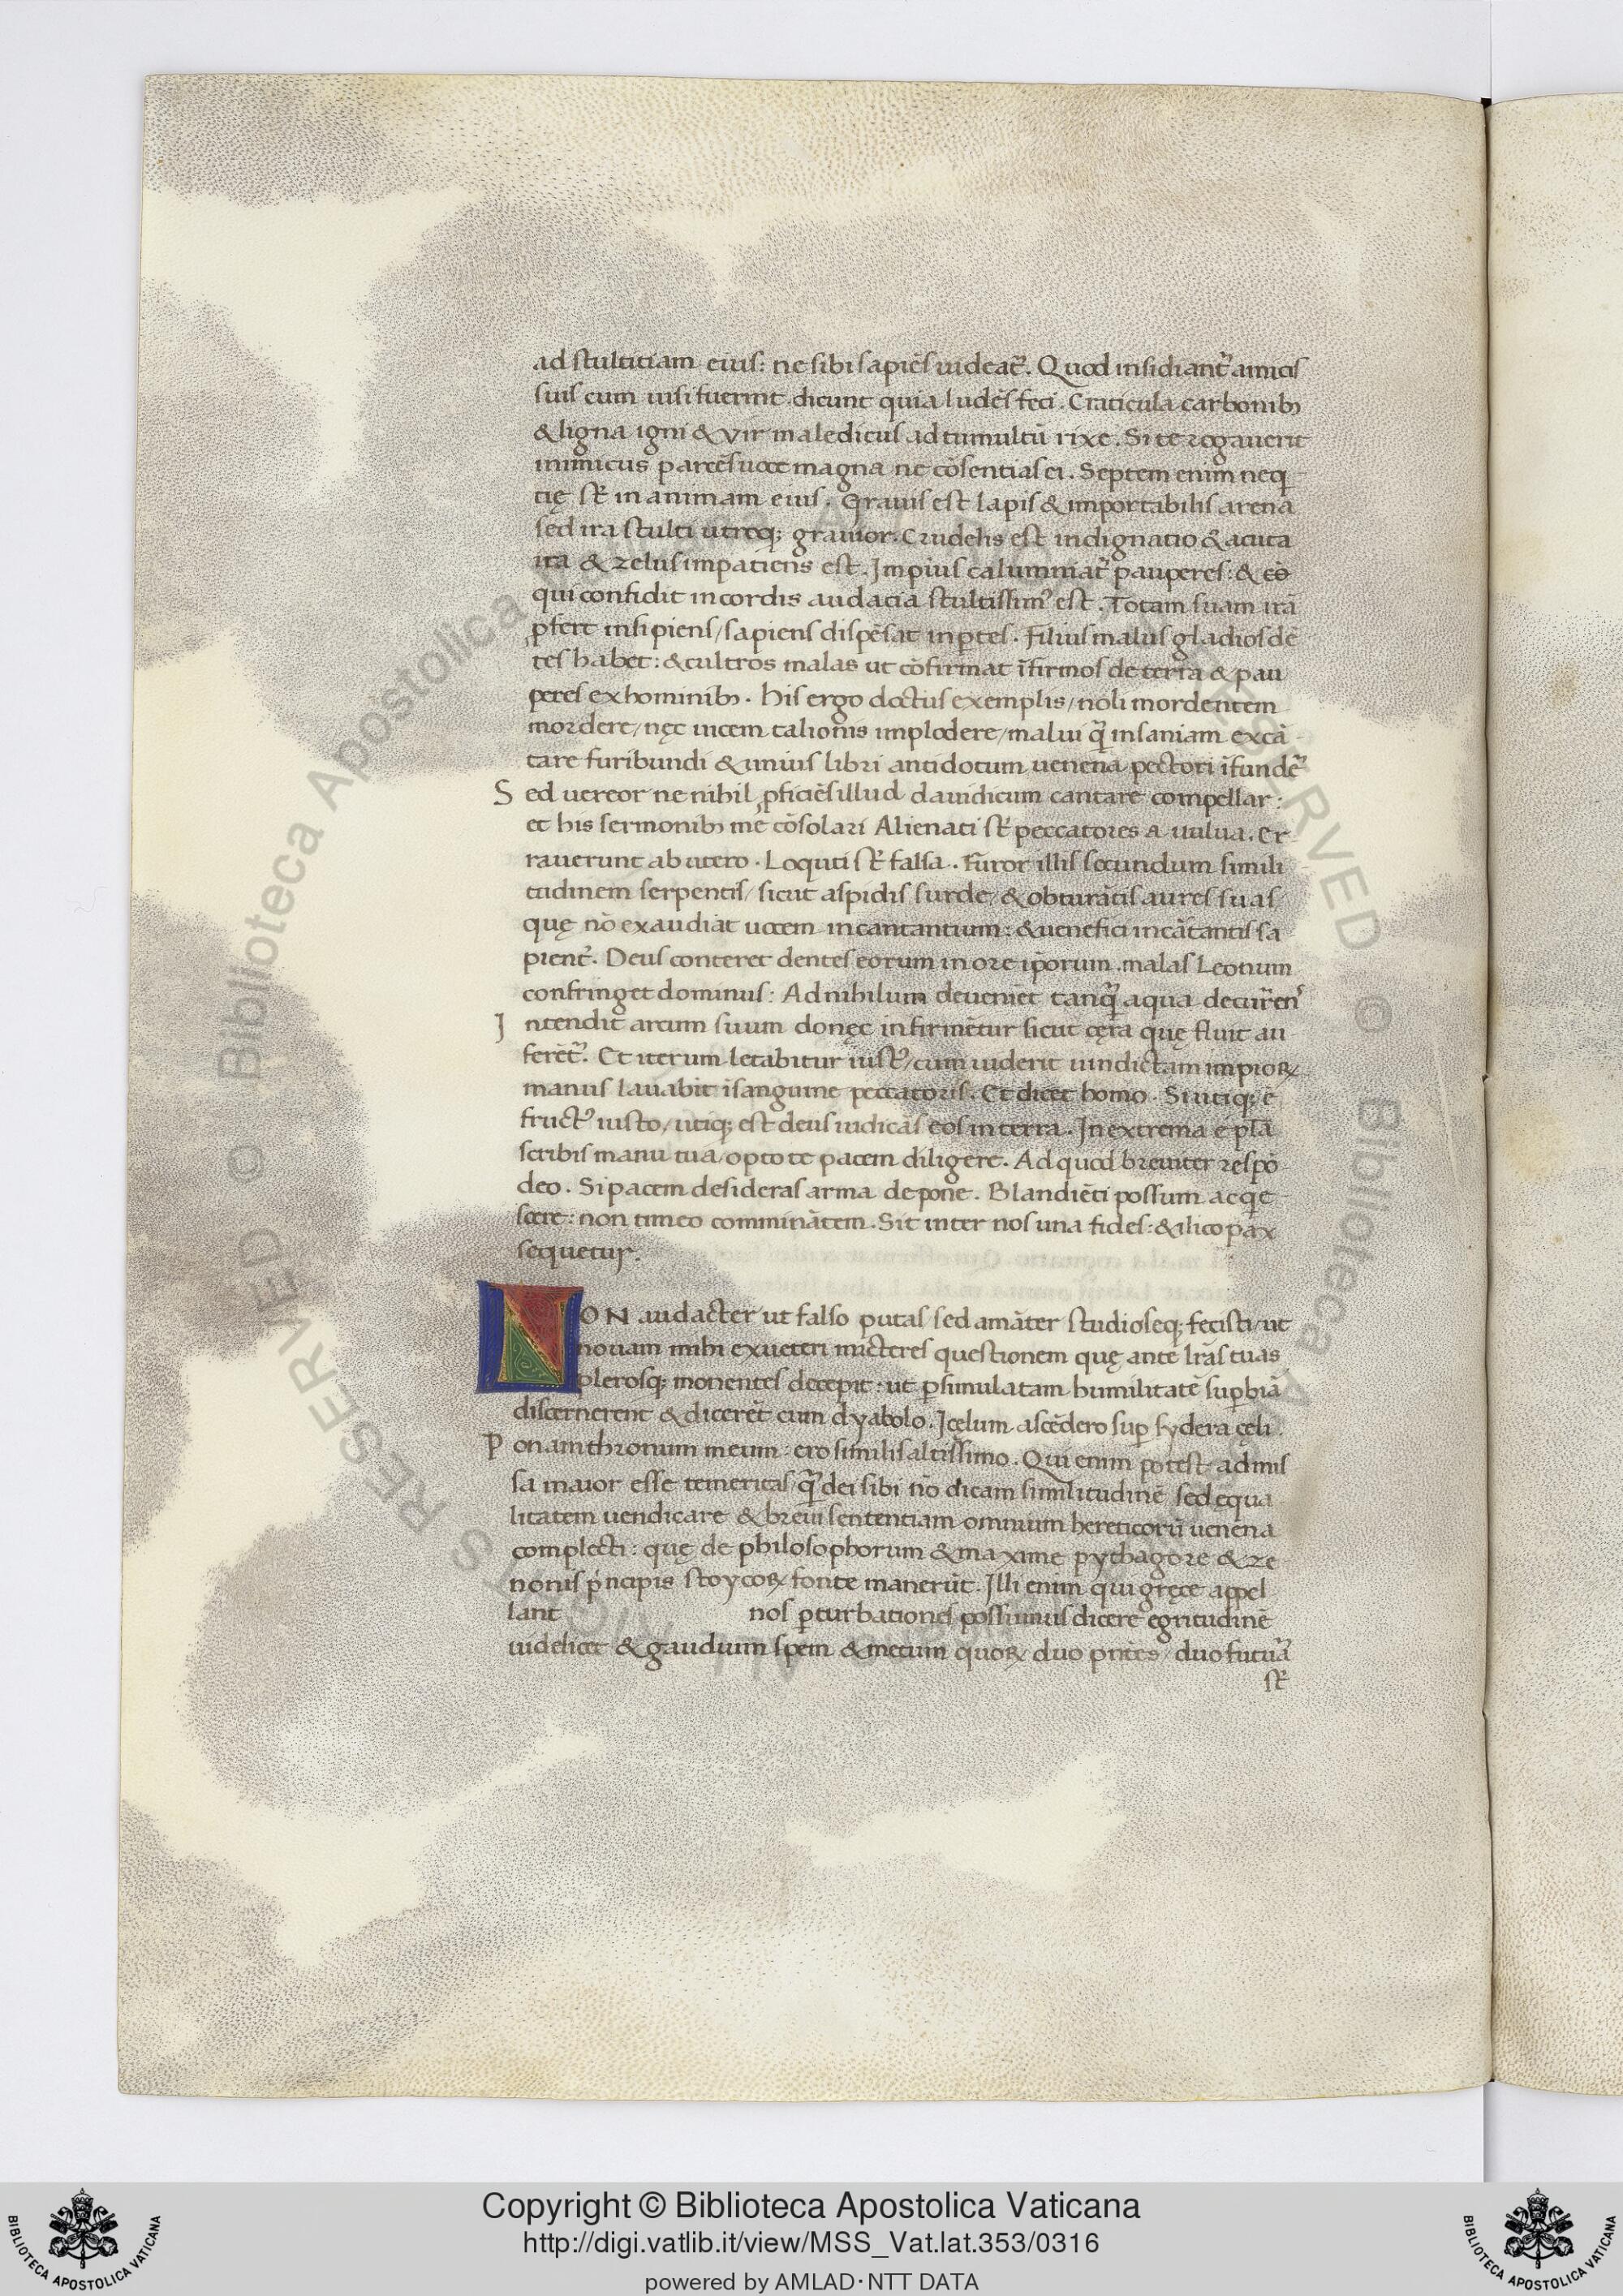 ad stultitiam eius: ne sibi sapiẽs uideat᷑. Quod insidiant᷑ amicis
suis cum uisi fuerint dicunt quia ludẽs feci. Craticula carbonibꝫ
& ligna igni & vir maledicus ad tumultũ rixe. Si te rogauerit
inimicus parcẽs uoce magna ne cõsentias ei. Septem enim neq
tię st̃ in animam eius. Grauis est lapis & importabilis arena
sed ira stulti utreqꝫ grauior. Crudelis est indignatio & acuta
ira & zelus impatiens est. Impius calumniat᷑ pauperes: & eo
qui confidit in cordis audacia stultissimꝰ est. Totam suam irã
ꝓfert insipiens / sapiens dispẽsat in ꝑtes. Filius malus gladios dẽ
tes habet: & cultros malas ut cõfirmat ĩfirmos de terra & pau
peres ex hominibꝫ. His ergo doctus exemplis / noli mordentem
mordere / nęc uicem talionis implodere / malui q̃ insaniam excã
tare furibundi & unius libri antidotum uenena pectori ĩfunde᷑
Sed uereor ne nihil ꝓficiẽs illud dauidicum cantare compellar:
et his sermonibꝫ me cõsolari Alienati st̃ peccatores a uulua. Er
rauerunt ab utero. Loquti st̃ falsa. Furor illis secundum simili
tudinem serpentis / sicut aspidis surde / & obturãtis aures suas /
quę nõ exaudiãt uocem incantantium: & uenefici incãtantis sa
pient᷑. Deus conteret dentes eorum in ore ip̃orum. malas Leonum
confringet dominus: Ad nihilum deueniẽt tanq̃ aqua decurrenˢ
Intendit arcum suum donęc infirmẽtur sicut cęra quę fluit au
feret᷑. Et iterum letabitur iustꝰ / cum uiderit uindictam impioꝝ
manus lauabit ĩ sanguine peccatoris. Et dicet homo. Si utiqꝫ ẽ
fructꝰ iusto / utiqꝫ est deus iudicãs eos in terra. In extrema ep̃la
scribis manu tua / opto te pacem diligere. Ad quod breuiter respõ
deo. Si pacem desideras arma depone. Blandiẽti possum acqe
scere: non timeo comminãtem. Sit inter nos una fides: & ilico pax
sequetur.
NON audacter ut falso putas / sed amãter studioseqꝫ fecisti / ut
nouam mihi ex ueteri micteres questionem quę ante lr̃as tuas
plerosqꝫ monentes decepit: ut ꝑ simulatam humilitatẽ suꝑbiã
discernerent & dicerẽt cum dyabolo. I cęlum ascẽdero suꝑ sydera cęli.
Ponam thronum meum: ero similis altissimo. Qui enim potest admis
sa maior esse temeritas / q̃ dei sibi nõ dicam similitudinẽ sed equa
litatem uendicare & breui sententiam omnium hereticorũ uenena
complecti: quę de philosophorum & maxime pythagore & ze
nonis p̃ncipis stoycoꝝ fonte manerũt. Illi enim qui gręce appel
lant nos ꝑturbationes possumus dicere egritudinẽ
uidelicet & gaudium spem & metum quoꝝ duo p̃ntes / duo futura
st̃
Copyright © Biblioteca Apostolica Vaticana
http://digi.vatlib.it/view/MSS_Vat.lat.353/0316
powered by AMLAD·NTT DATA
BIBLIOTECA APOSTOLICA VATICANA
BIBLIOTECA APOSTOLICA VATICANA